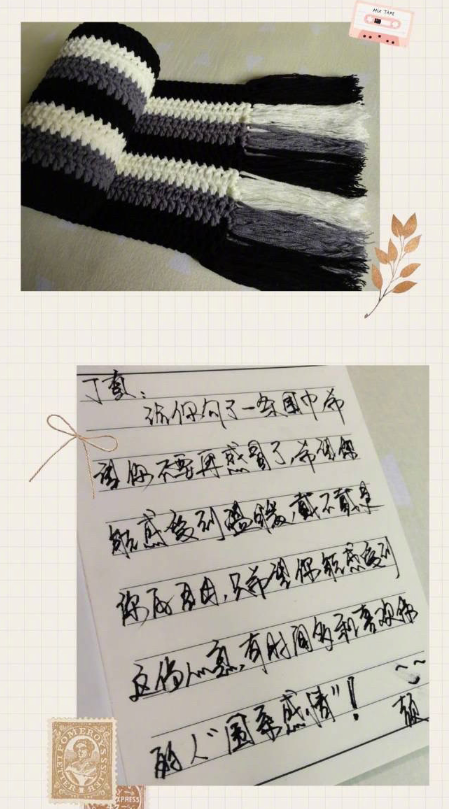 MIX TAPE
丁真：
给你勾了一条围巾希
望你不要再感冒了，希望你
能感受到温暖，戴不戴是
你的自由，只希望你能感受到
这份心意，有时间多和喜欢你
的人“围系感情”！
POMEROY'S
LETTER
EXPRESS